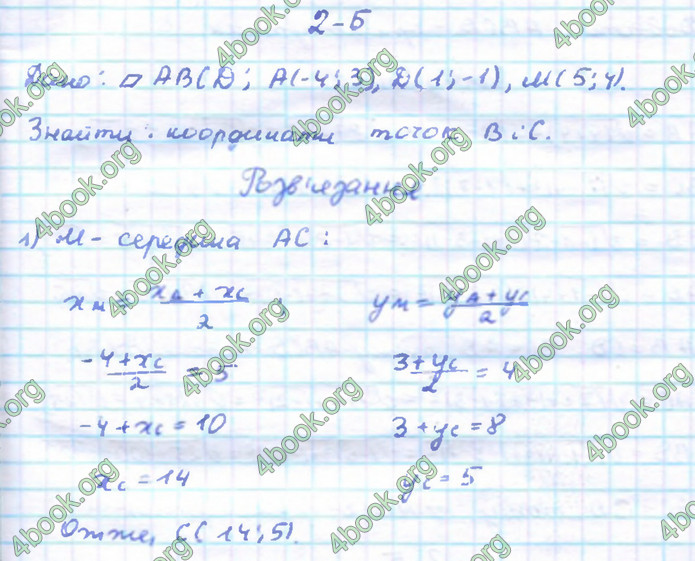 2-Б
Дано: ▱ ABCD; A(-4; 3), D(1; -1), M(5; 4).
Знайти: координати точок B і C.
Розв'язання
1) M - середина AC:
xм = (xA + xC)/2 ; yм = (yA + yC)/2
(-4 + xC)/2 = 5 (3 + yC)/2 = 4
-4 + xC = 10 3 + yC = 8
xC = 14 yC = 5
Отже, C(14; 5).
4book.org